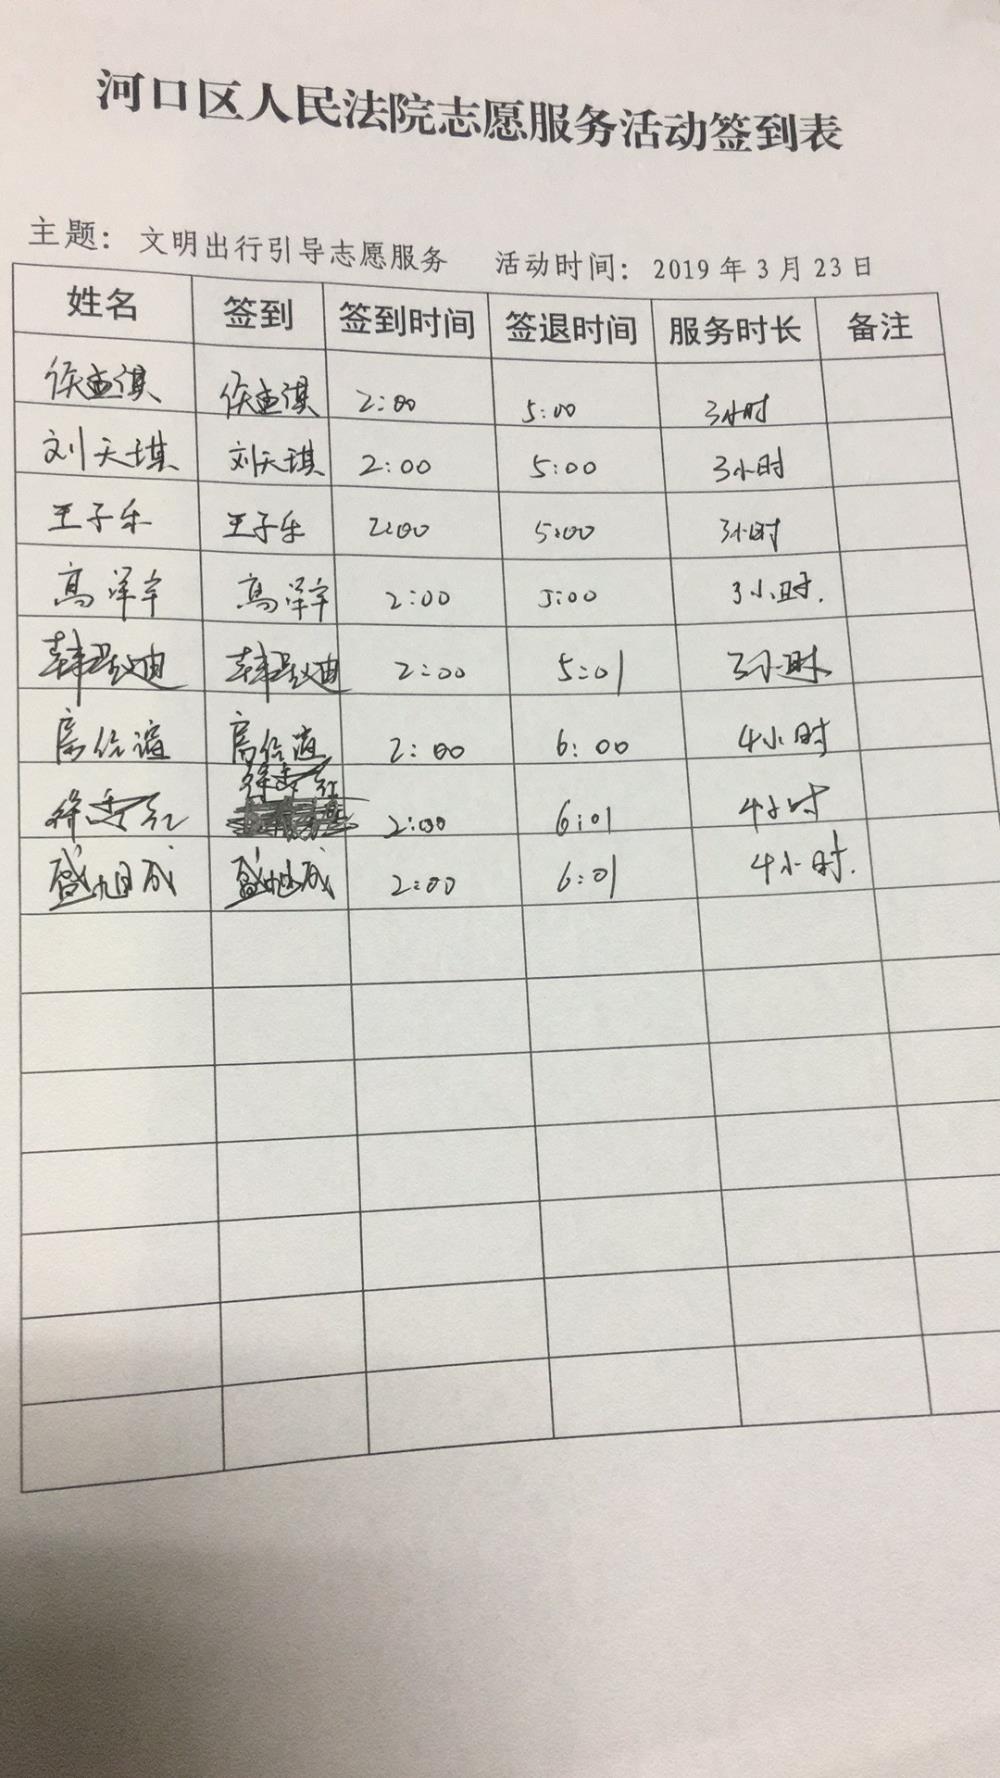 河口区人民法院志愿服务活动签到表
主题：文明出行引导志愿服务 活动时间：2019年3月23日
姓名 签到 签到时间 签退时间 服务时长 备注
2:00 5:00 3小时
刘天琪 刘天琪 2:00 5:00 3小时
王子乐 王子乐 2:00 5:00 3小时
高泽宇 高泽宇 2:00 5:00 3小时.
韩 迪 韩 迪 2:00 5:01 3小时
2:00 6:00 4小时
徐秀红 徐秀红 2:00 6:01 4小时
盛旭成 盛旭成 2:00 6:01 4小时.